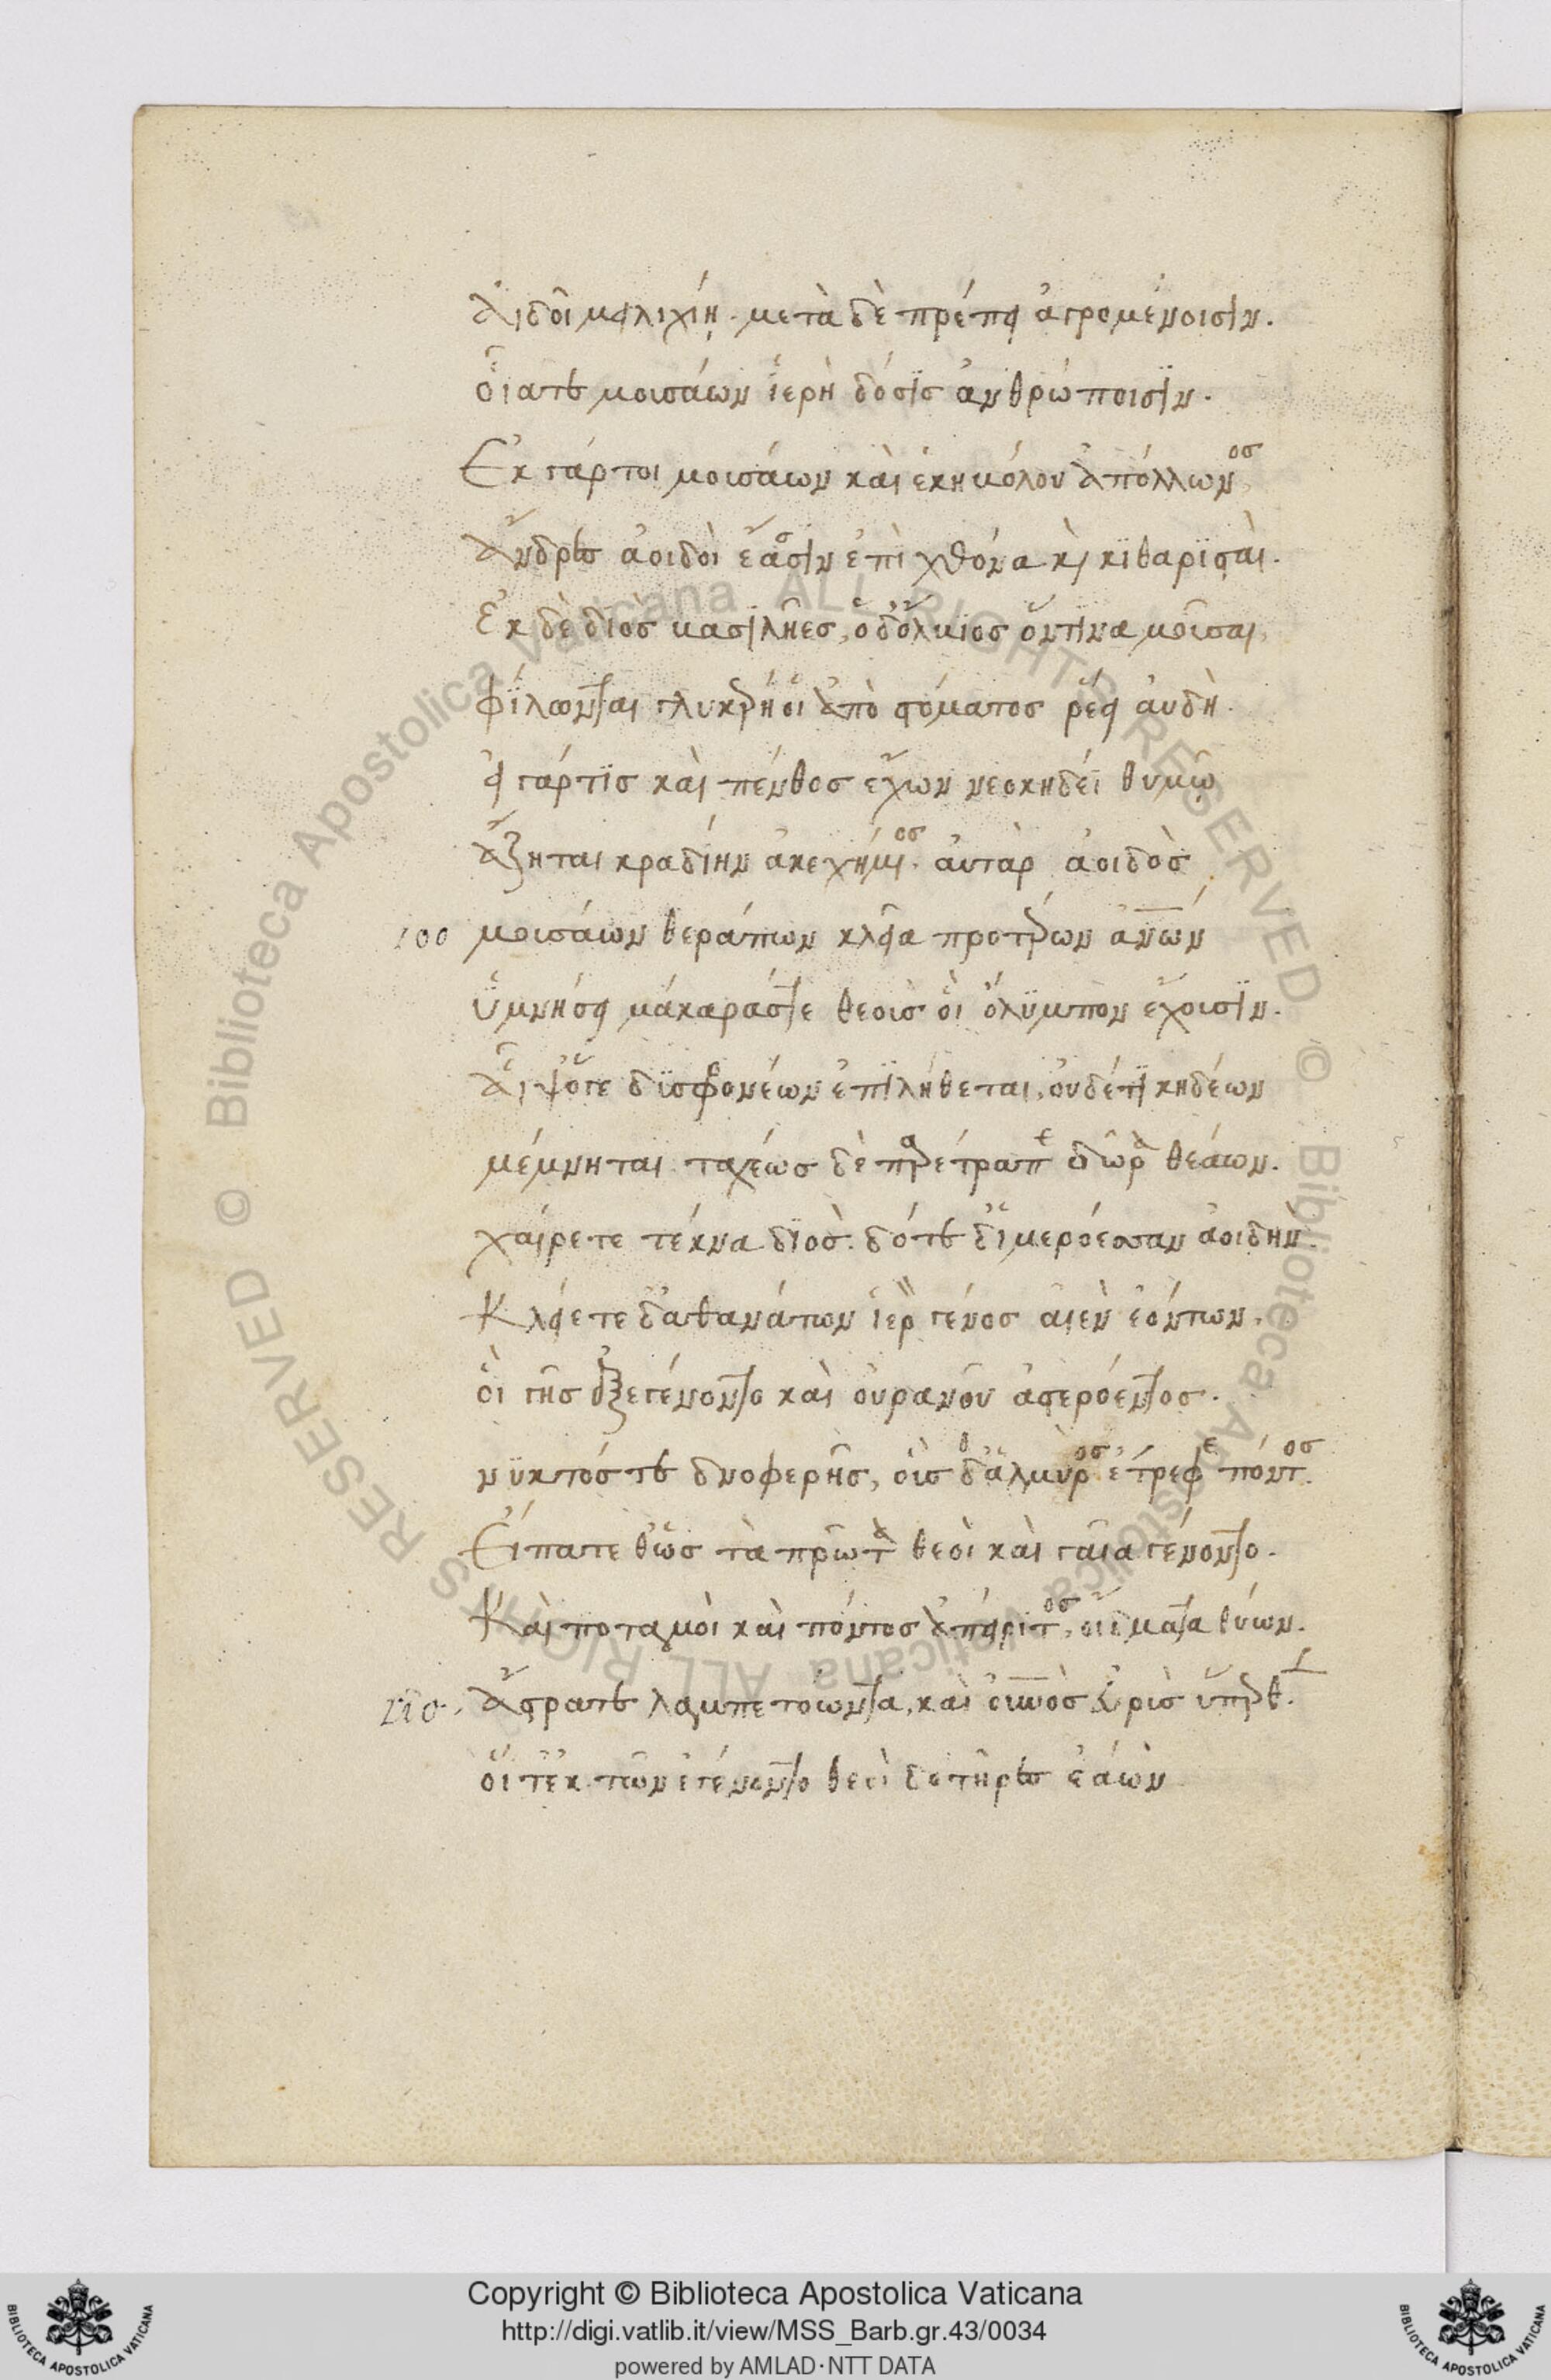 Αἰδοῖ μειλιχίῃ· μετὰ δὲ πρέπει ἀγρομένοισιν.
οἷά τε μουσάων ἱερὴ δόσις ἀνθρώποισιν.
Ἐκ γάρ τοι μουσάων καὶ ἑκηβόλου Ἀπόλλωνος,
Ἄνδρες ἀοιδοὶ ἔασιν ἐπὶ χθόνα καὶ κιθαρισταί.
Ἐκ δὲ διὸς βασιλῆες, ὁ δ' ὄλβιος ὅντινα μοῦσαι,
φίλωνται γλυκερή οἱ ἀπὸ στόματος ῥέει αὐδή.
εἰ γάρ τις καὶ πένθος ἔχων νεοκηδέϊ θυμῷ
Ἄζηται κραδίην ἀκαχήμενος. αὐτὰρ ἀοιδὸς
100 μουσάων θεράπων κλεῖα προτέρων ἀνων
ὑμνήσει μάκαράς τε θεοὺς οἳ ὄλυμπον ἔχουσιν.
Αἶψ' ὅγε δυσφρονέων ἐπιλήθεται, οὐδέ τι κηδέων
μέμνηται ταχέως δὲ παρέτραπε δῶρα θεάων.
χαίρετε τέκνα διός. δότε δ' ἱμερόεσσαν ἀοιδήν.
Κλείετε δ' ἀθανάτων ἱερὸν γένος αἰὲν ἐόντων.
οἳ γῆς ἐξεγένοντο καὶ οὐρανοῦ ἀστερόεντος.
νυκτός τε δνοφερῆς, οὓς θ' ἁλμυρὸς ἔτρεφε πόντος.
Εἴπατε δ' ὡς τὰ πρῶτα θεοὶ καὶ γαῖα γένοντο.
Καὶ ποταμοὶ καὶ πόντος ἀπείριτος, οἴδματα θύων.
110. Ἄστρα τε λαμπετόωντα, καὶ οὐνὸς εὐρὺς ὕπερθεν.
οἵ τ' ἐκ τῶν ἐγένοντο θεοὶ δοτῆρες ἐάων
Copyright © Biblioteca Apostolica Vaticana
http://digi.vatlib.it/view/MSS_Barb.gr.43/0034
powered by AMLAD·NTT DATA